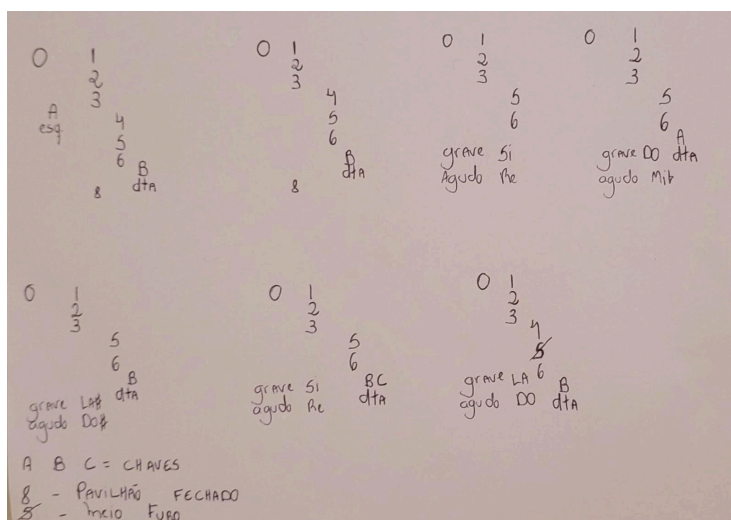 0 1
2
3
A
esq
4
5
6
B
dtA
8
0 1
2
3
4
5
6
B
dtA
8
0 1
2
3
5
6
grave Si
Agudo Re
0 1
2
3
5
6
A
grave DO dtA
agudo Mib
0 1
2
3
5
6
B
grave LA# dtA
agudo DO#
0 1
2
3
5
6
grave Si BC
agudo Re dtA
0 1
2
3
4
5
6
grave LA B
agudo DO dtA
A B C = CHAVES
8 - PAVILHÃO FECHADO
5 - meio FURO